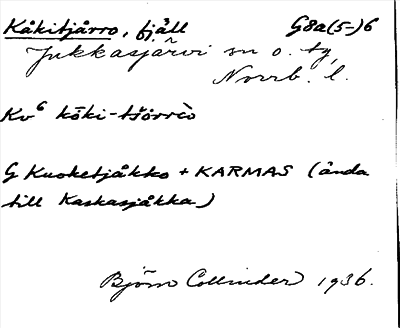 Kåkitjårro, fjäll G8a(5-)6
Jukkasjärvi sn o. tg,
Norrb. l.
Kv⁶ kōki-tšōrrò
G Kuoketjåkko + KARMAS (ända
till Kaskasjåkka)
Björn Collinder 1936.